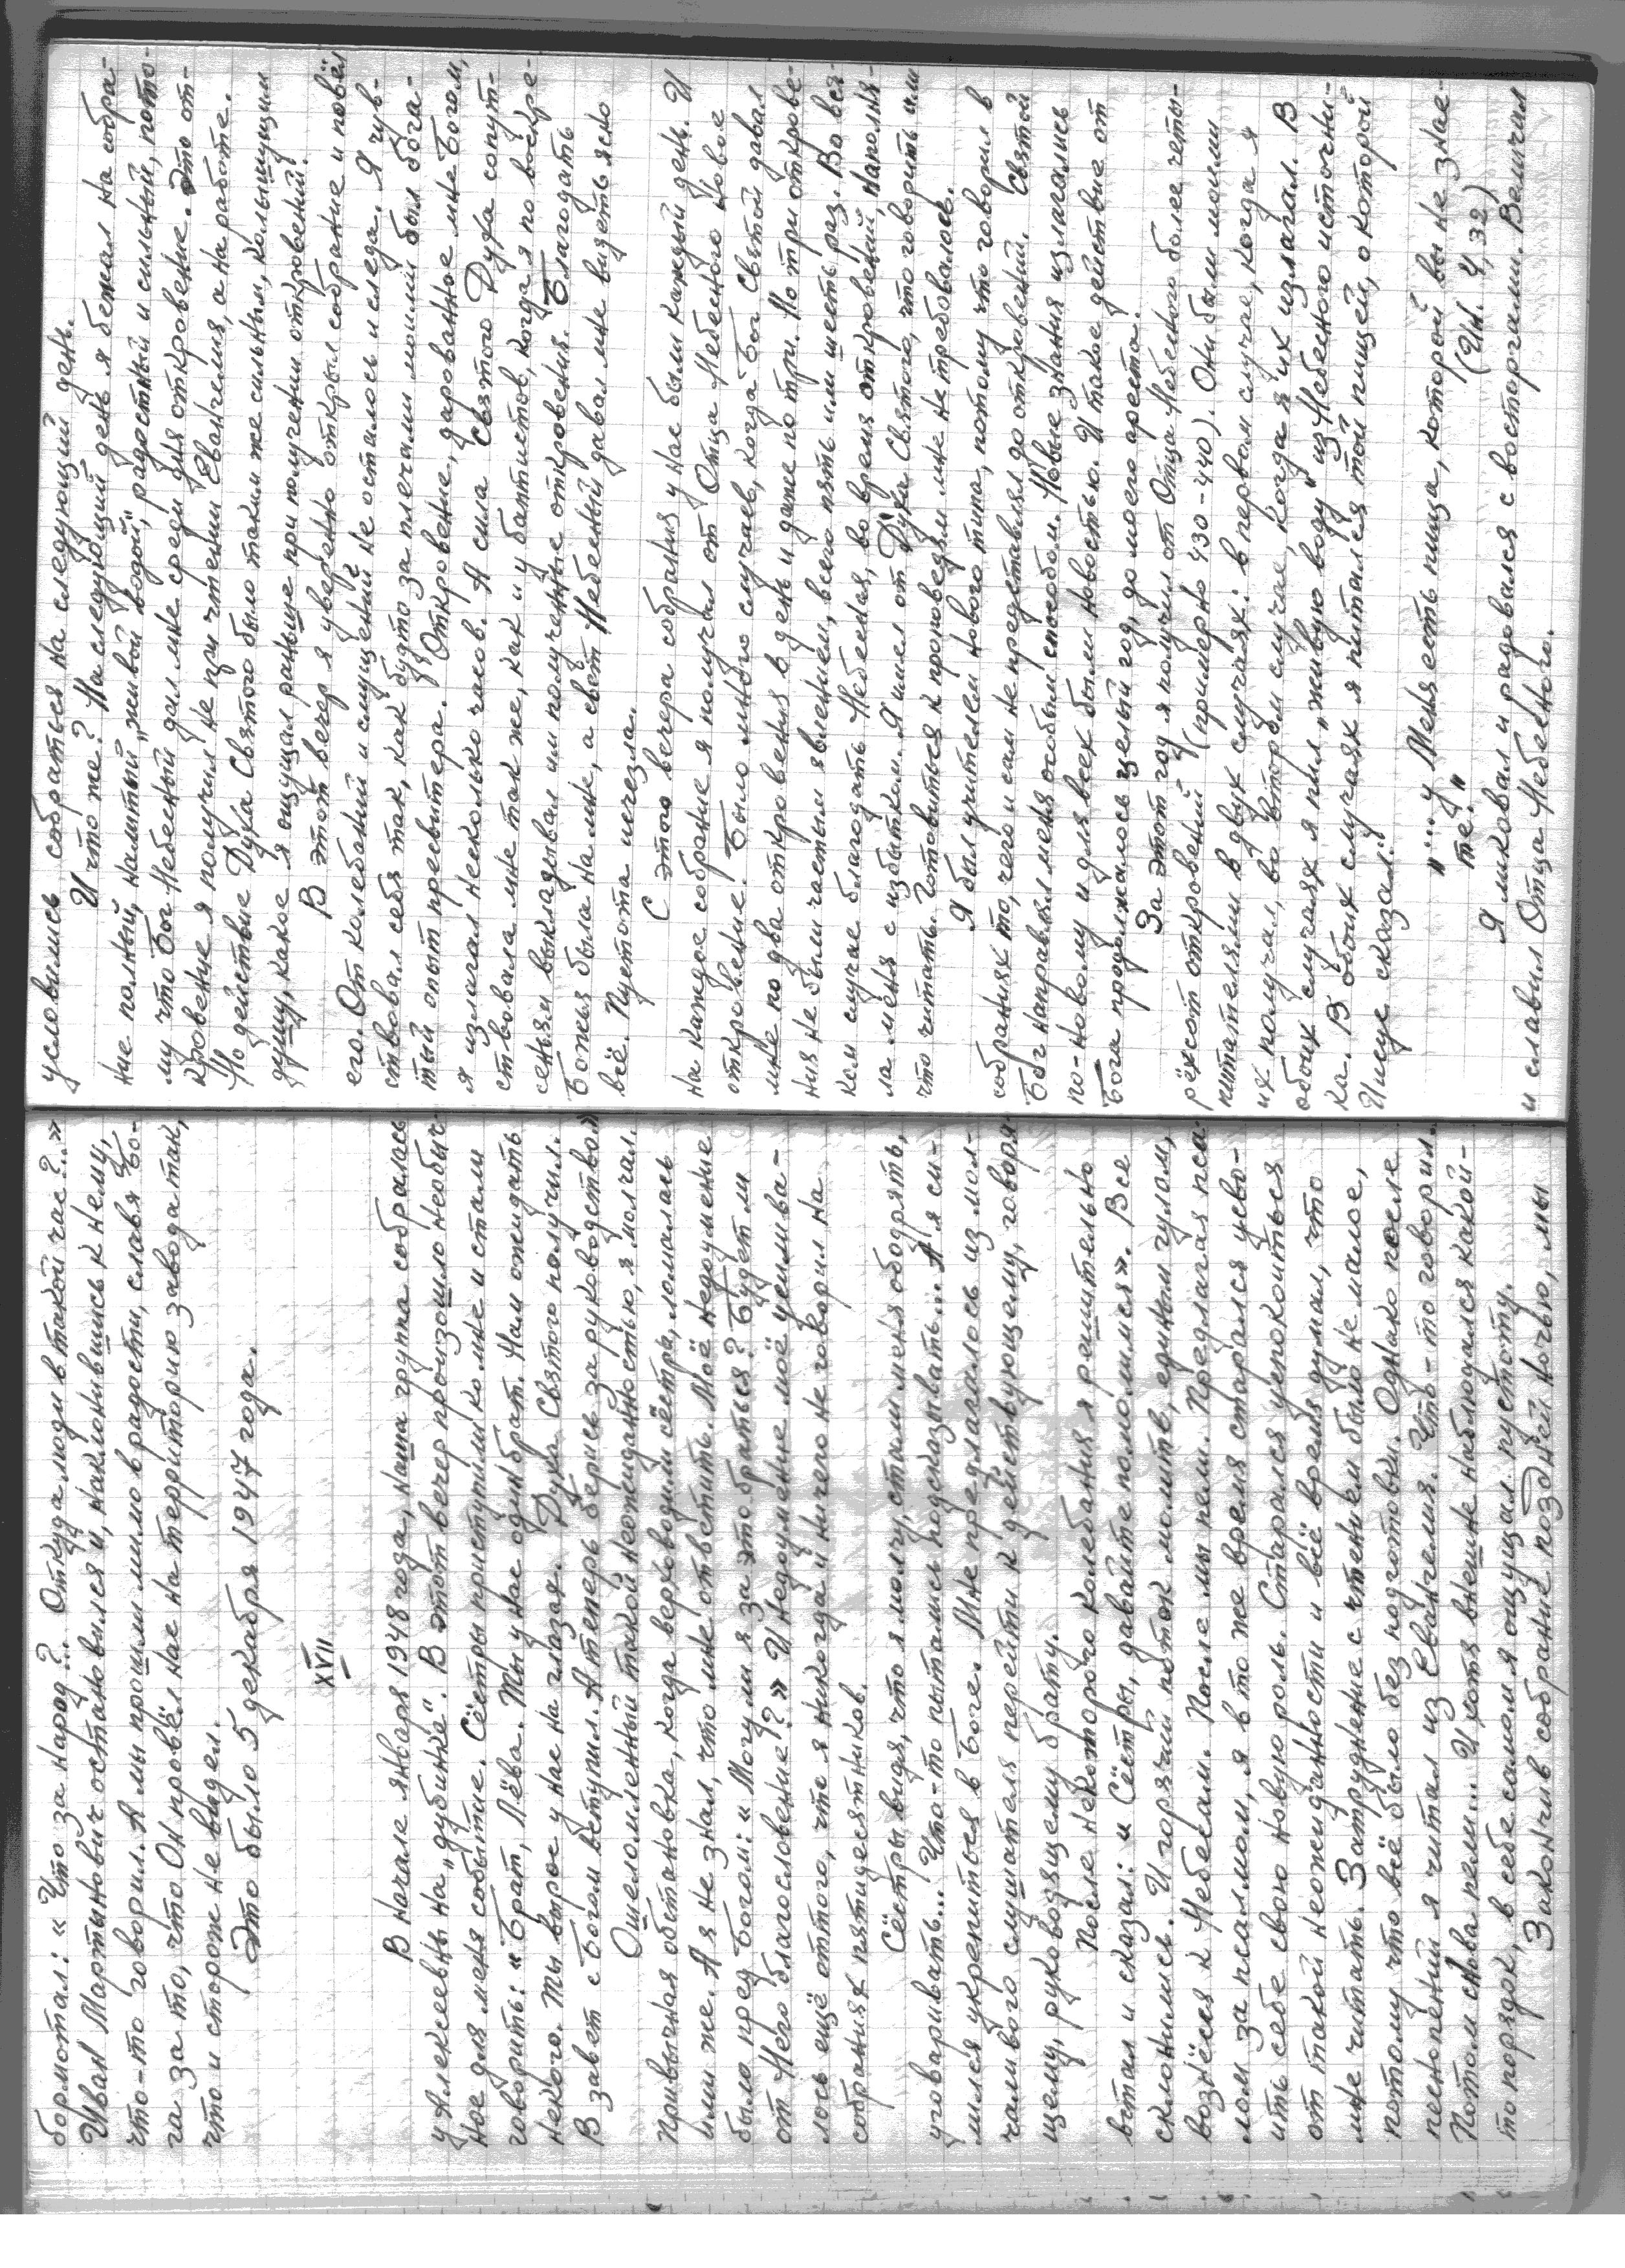 бормотал: « Что за народ?... Откуда люди в такой час?...»
Иван Мартынович остановился и, наклонившись к нему,
что-то говорил. А мы прошли мимо в радости, славя Бо-
га за то, что Он провёл нас на территорию завода так,
что и сторож не видел.
Это было 5 декабря 1947 года.
XVII
В начале января 1948 года, наша группа собралась
у Алексеевны на „дубинке". В этот вечер произошло необыч-
ное для меня событие. Сёстры приступили ко мне и стали
говорить: « Брат, Лёва. Ты у нас один брат. Нам ожидать
некого. Ты вырос у нас на глазах. Духа Святого получил.
В завет с Богом вступил. А теперь берись за руководство»
Ошеломлённый такой неожиданностью, я молчал.
Привычная обстановка, когда верховоди сёстры, ломалась
ими же. А я не знал, что мне ответить. Моё недоумение
было пред Богом: « Могу ли я за это браться? Будет ли
от Него благословение?» И недоумение моё усилива-
лось ещё оттого, что я никогда и ничего не говорил на
собраниях пятидесятников.
Сёстры видя, что я молчу, стали меня ободрять,
уговаривать... Что-то пытались подсказывать... А я си-
лился укрепиться в Боге. Мне предлагалось из мол-
чаливого слушателя перейти к действующему, говоря-
щему, руководящему брату.
После некоторого колебания я решительно
встал и сказал: « Сёстры, давайте помолимся». Все
склонились. И горячий поток молитв, единым гулом,
вознёсся к Небесам. После мы пели. Предлагая пса-
лом за псалмом, я в то же время старался усво-
ить себе свою новую роль. Старался успокоиться
от такой неожиданности и всё время думал, что
мне читать. Затруднение с чтением было не малое,
потому что всё было без подготовки. Однако после
песнопений я читал из Евангелия. Что-то говорил.
Потом снова пели... И хотя внешне наблюдался какой-
то порядок, в себе самом я ощущал пустоту.
Закончив собрание поздней ночью, мы
условились собраться на следующий день.
И что же? На следующий день я бежал на собра-
ние полный, налитый „живой водой", радостный и сильный, пото-
му что Бог Небесный дал мне среди дня откровение. Это от-
кровение я получил не при чтении Евангелия, а на работе.
Но действие Духа Святого было таким же сильным, колышущим
душу, какое я ощущал раньше при получении откровений.
В этот вечер я уверенно открыл собрание и повёл
его. От колебаний и смущений не осталось и следа. Я чув-
ствовал себя так, как будто за плечами моими был бога-
тый опыт пресвитера. Откровение, дарованное мне Богом,
я излагал несколько часов. А сила Святого Духа сопут-
ствовала мне так же, как и у баптистов, когда я по воскре-
сеньям выкладывал им полученные откровения. Благодать
Божья была на мне, а свет Небесный давал мне видеть ясно
всё. Пустота исчезла.
С этого вечера собрания у нас были каждый день. И
на каждое собрание я получал от Отца Небесного новое
откровение. Было много случаев, когда Бог Святой давал
мне по два откровения в день и даже по три. Но три открове-
ния не были частым явлением, всего пять или шесть раз. Во вся-
ком случае благодать Небесная, во время откровений наполня-
ла меня с избытком. Я имел от Духа Святого, что говорить или
что читать. Готовиться к проповедям мне не требовалось.
Я был учителем нового типа, потому что говорил в
собраниях то, чего и сам не представлял до откровений. Святой
Бог направлял меня особым способом. Новые знания излагались
по-новому и для всех были новостью. И такое действие от
Бога продолжалось целый год, до моего ареста.
За этот год я получил от Отца Небесного более четы-
рёхсот откровений (примерно 430-440). Они были моими
питателями в двух случаях: в первом случае, когда я
их получал, во втором случае, когда я их излагал. В
обоих случаях я пил „живую воду" из Небесного источни-
ка. В обоих случаях я питался той пищей, о которой
Иисус сказал:
"... у Меня есть пища, которой вы не знае-
те." (Ин. 4,32)
Я ликовал и радовался с восторгами. Величал
и славил Отца Небесного.